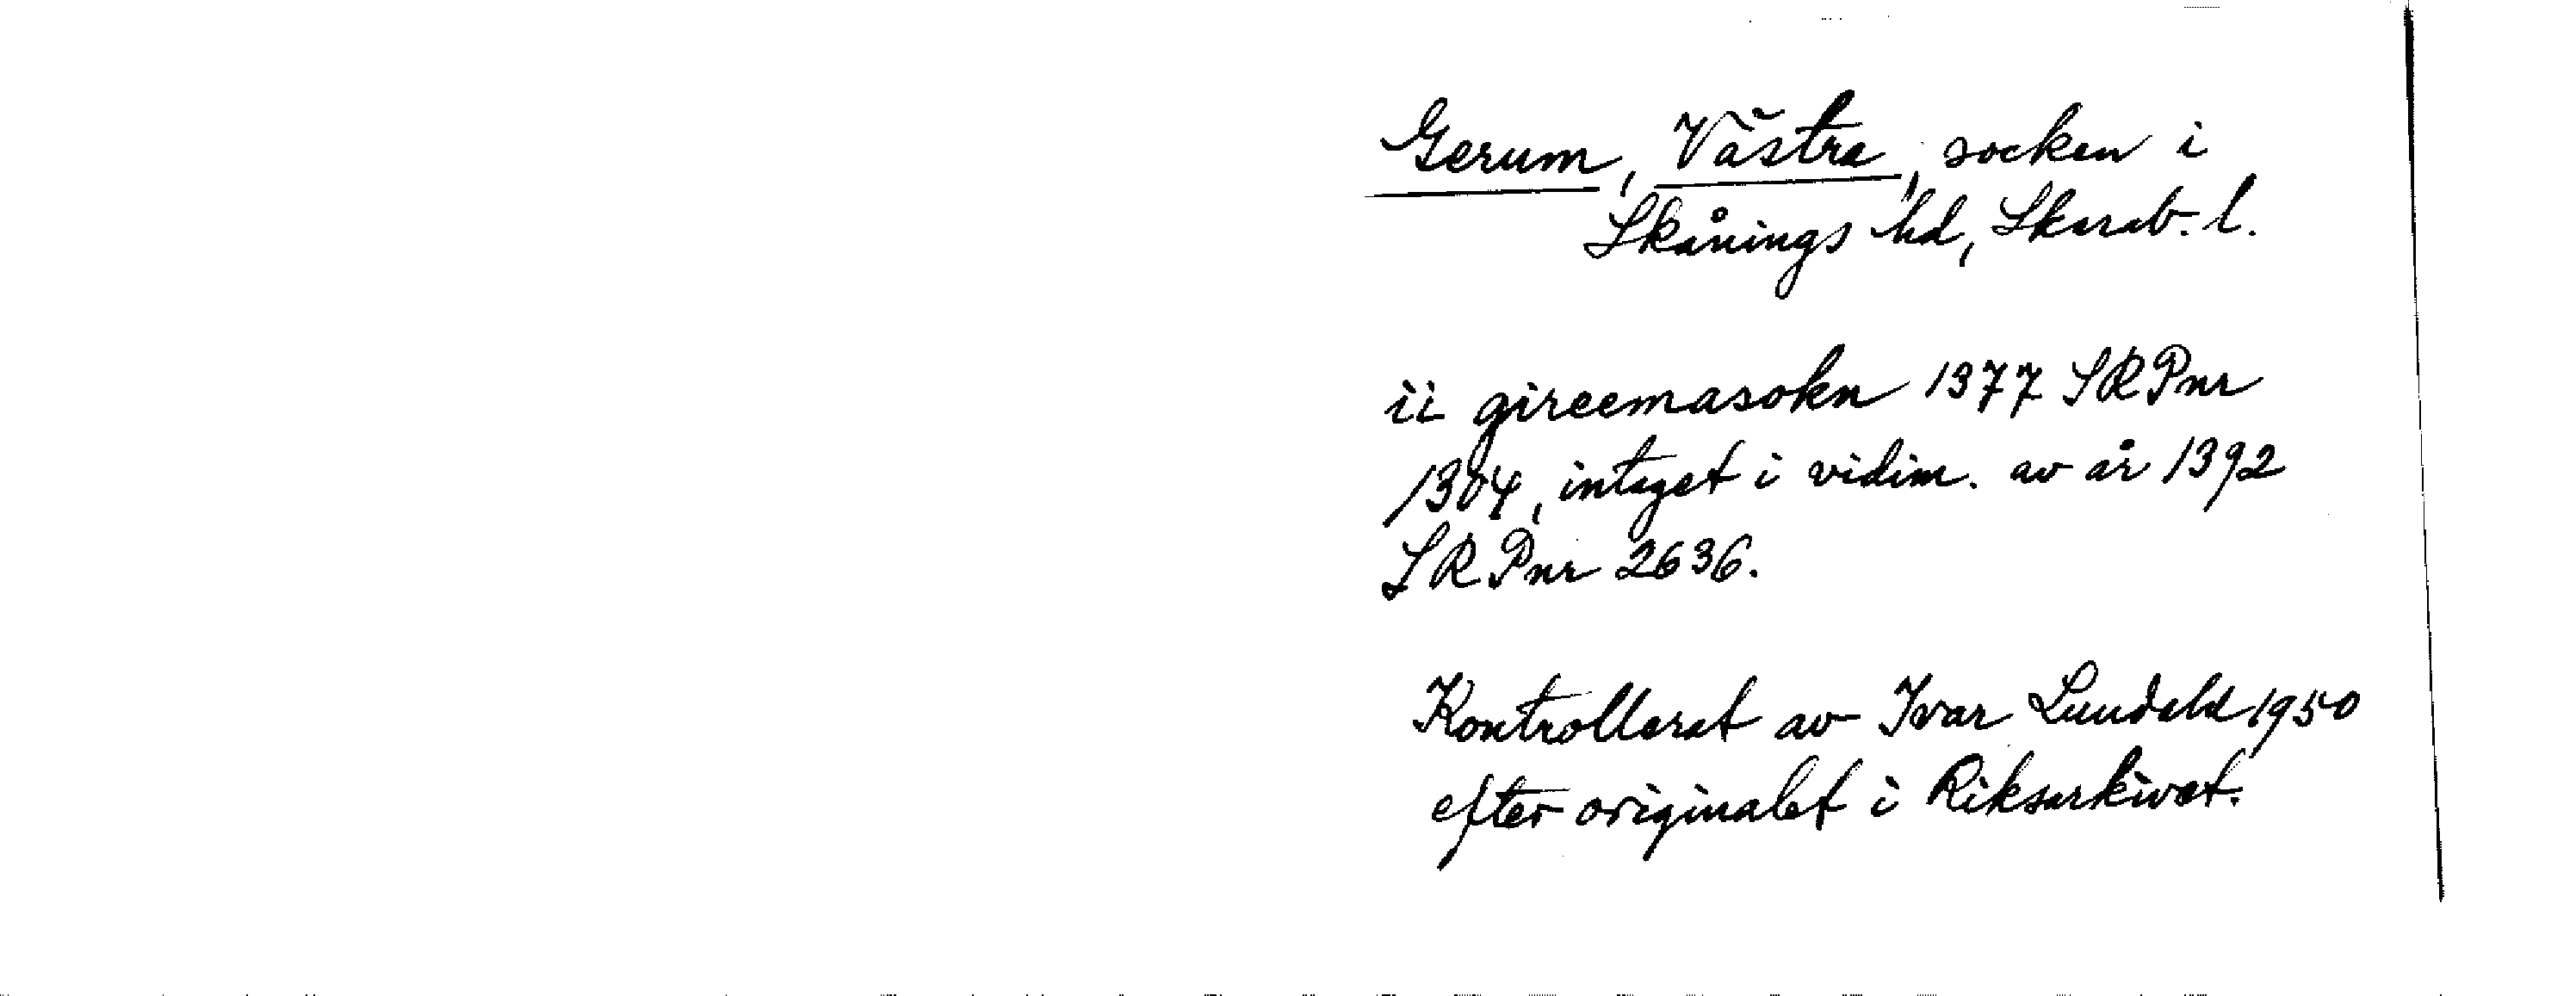 Gerum, Västra, socken i
Skånings hd, Skarab. l.
ii gireemasokn 1377 SRPnr
1304, intaget i vidim. av år 1392
SRPnr 2636.
Kontrollerat av Ivar Lundahl 1950
efter originalet i Riksarkivet.